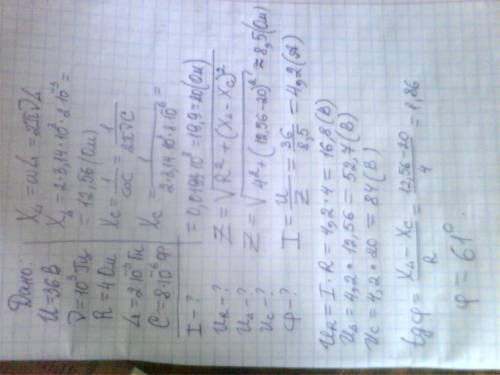 Дано:
U=36 В
ν=10³ Гц
R=4 Ом
L=2·10⁻³ Гн
C=8·10⁻⁶ Ф
I-?
U_R-?
U_L-?
U_C-?
φ-?
X_L=ωL=2πνL
X_L=2·3,14·10³·2·10⁻³=
=12,56 (Ом)
X_C=1/ωC=1/2πνC
X_C=1/2·3,14·10³·8·10⁻⁶=
=0,0199·10³=19,9=20 (Ом)
Z=√R²+(X_L-X_C)²
Z=√4²+(12,56-20)²≈8,5 (Ом)
I=U/Z=36/8,5=4,2 (А)
U_R=I·R=4,2·4=16,8 (В)
U_L=4,2·12,56=52,7 (В)
U_C=4,2·20=84 (В)
tgφ=X_L-X_C/R=12,56-20/4=1,86
φ=61°